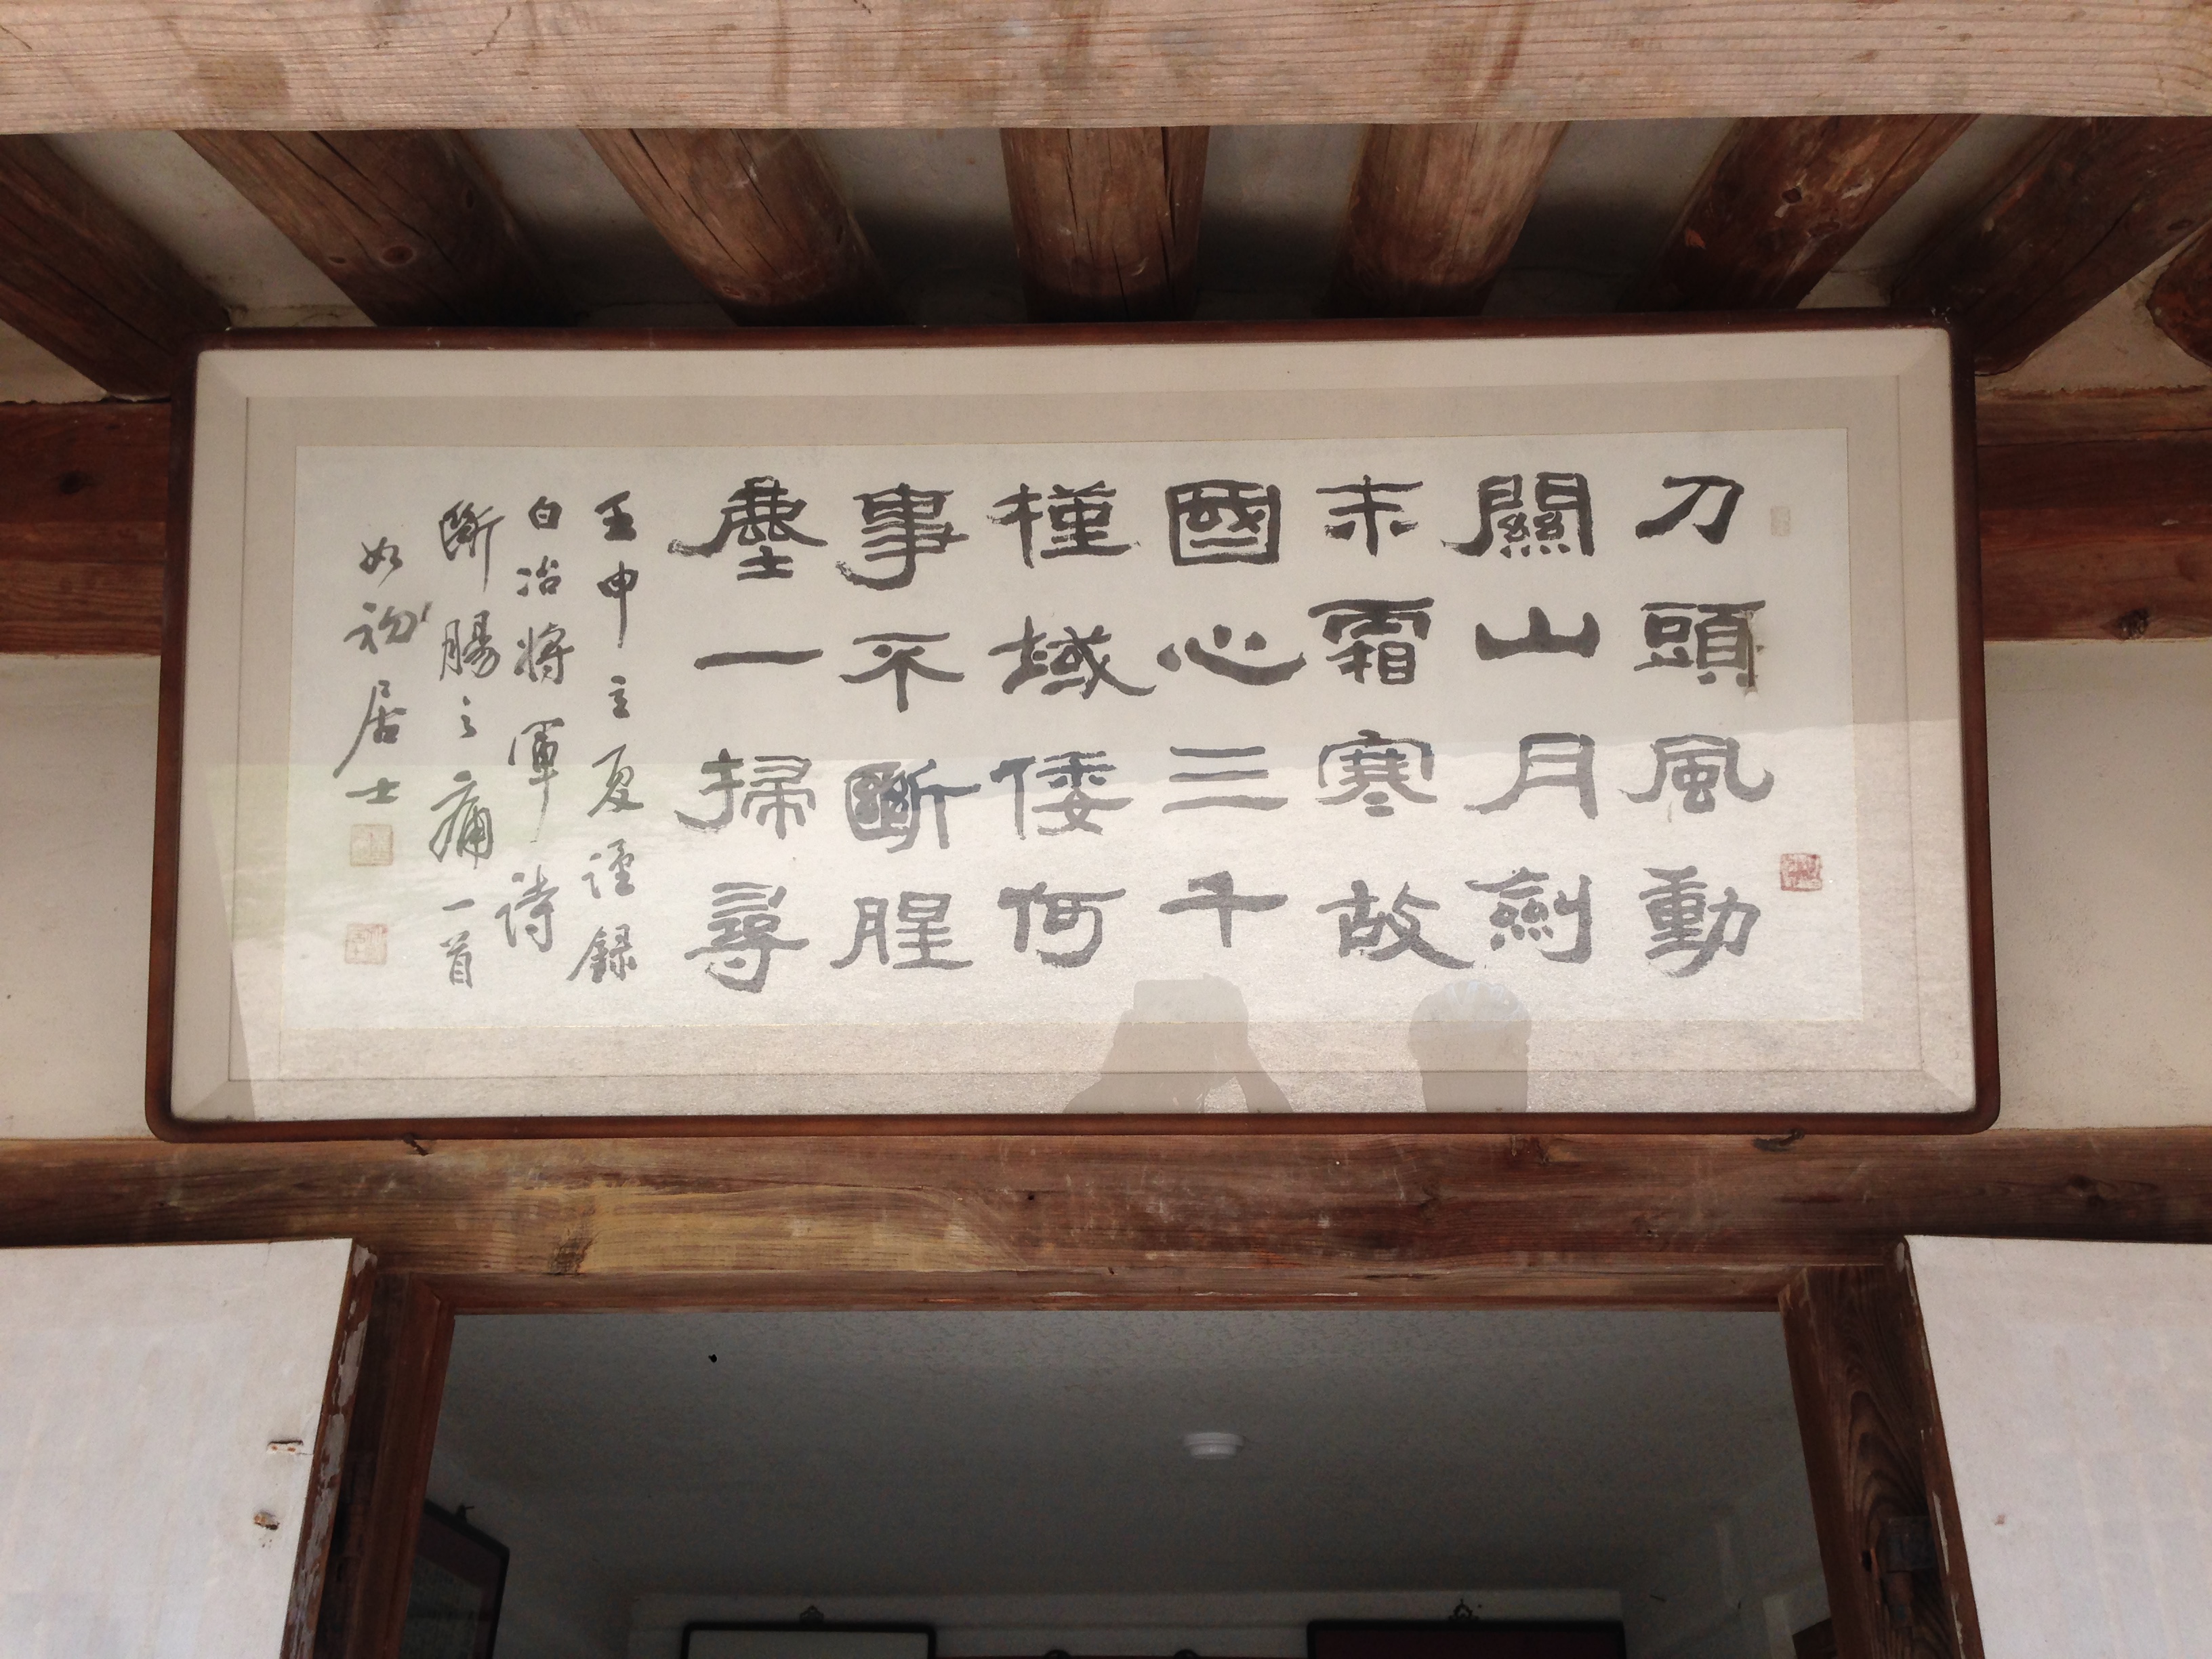 刀頭風動
關山月劍
末霜寒故
國心三千
槿域倭何
事不斷腥
塵一掃尋
壬申立夏謹録
白冶將軍詩
斷腸之痛一首
如初居士